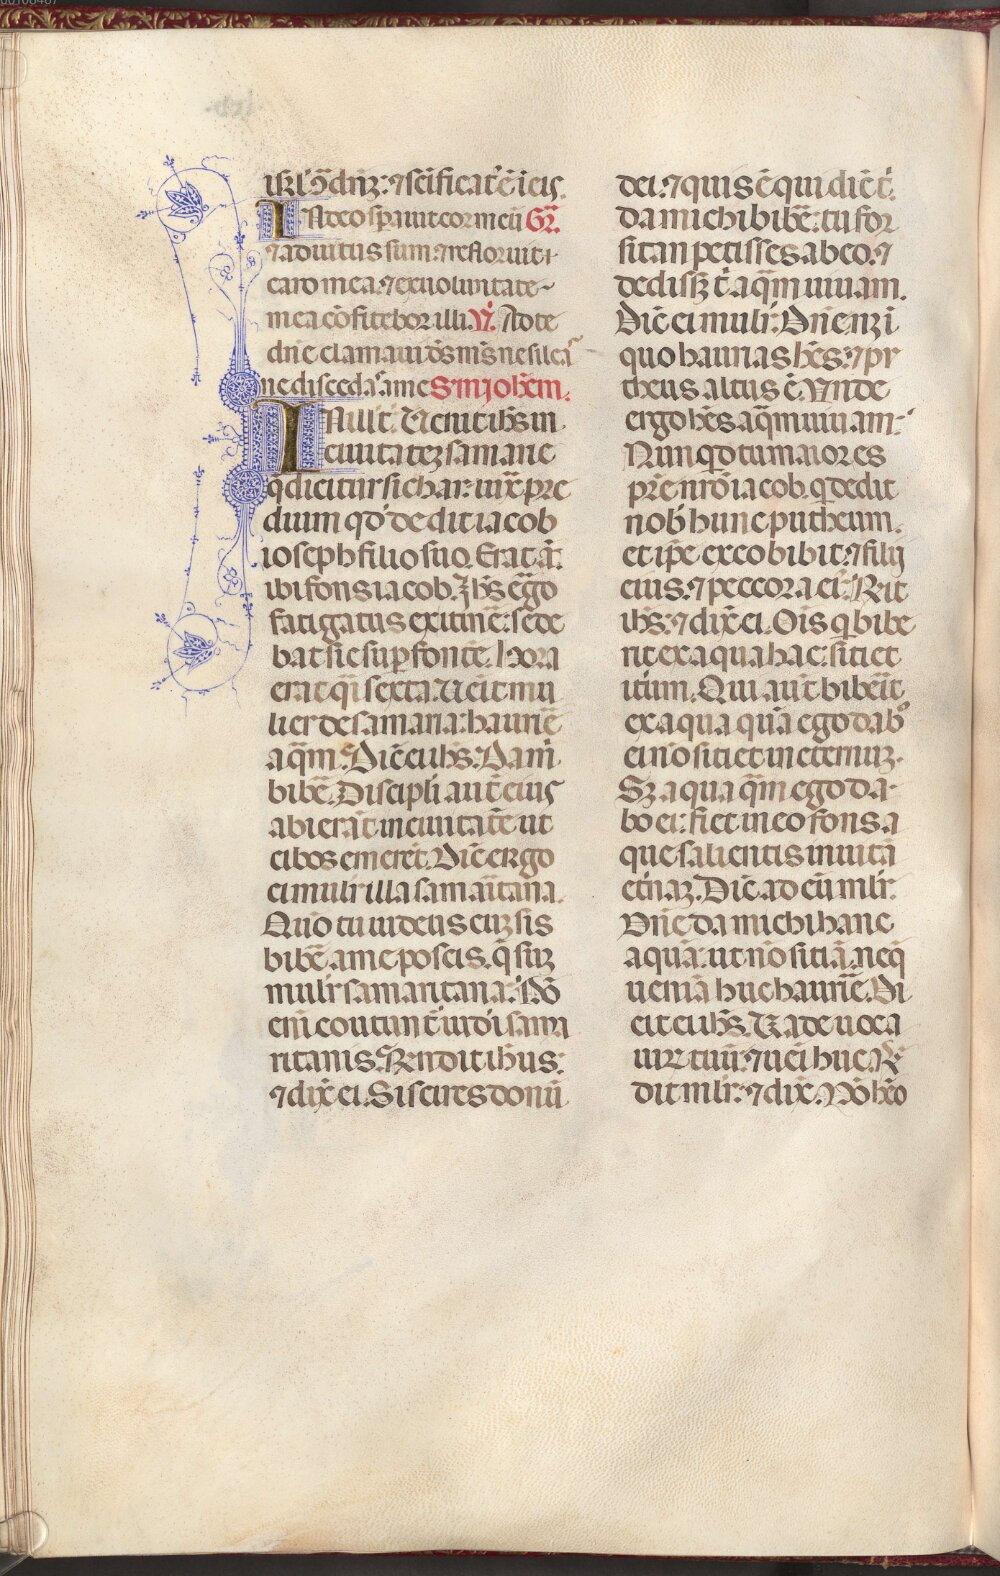 isrl ꝯ dñz: ⁊ scificat' ē ī eis.
IN deo sp̄auit cor meū Gr̄.
⁊ adiutus sum: ⁊ refloruit
caro mea. ⁊ ex uoluntate
mea ꝯfitebor illi. V̄. Ad te
dñe clamaui d̄s m̄s ne sileas
ne discedas a me S'm Johem.
IN ill' t̄. Uenit ih̄s in
ciuitatez samarie
q̄ dicitur sichar: iux̄ pre
dium qd' dedit iacob
ioseph filio suo. Erat at̄
ibi fons iacob. Ih̄s ergo
fatigatus ex itine: sede
bat sic sup̱ fontē. Hora
erat q̄i sexta. Ueit mu
lier de samaria: haurire
aq̄m. Dic̄ ei ih̄s: Da m̄
bibē. Discipli aut̄ eius
abierāt in ciuitatē ut
cibos emerēt. Dic̄ ergo
ei mulr illa samaritana.
Quō tu iudeus cuz sis
bibē a me poscis. q̄ suz
mulr samaritana: Nō
eni coutunt̄ iudi sama
ritanis. Rn̄dit ih̄us:
⁊ dix̄ ei. Si scires donū
dei: ⁊ quis ē qui dic̄ t̄.
da michi bibē: tu for
sitan petisses ab eo. ⁊
dedissz t̄ aq̄m uiuam.
Dic̄ ei muli': Dñe nz i
quo haurias hēs: ⁊ pu
theus altus ē. Unde
ergo hēs aq̄m uiuam:
Nunqd tu maior es
pr̄e nr̄o iacob. q dedit
nob' hunc putheum.
et ip̄e ex eo bibit: ⁊ filij
eius. ⁊ peccora ei': Rn̄t
ih̄s: ⁊ dix̄ ei. Ois q bibe
rit ex aqua hac: sitiet
itūm. Qui aut̄ biberit
ex aqua quā ego dabo
ei nō sitiet in eternuz.
Sz aqua q̄m ego da
bo ei: fiet in eo fons a
que salientis in uitā
etnaz. Dic̄ ad eū mlr:
Dñe da michi hanc
aquā: ut nō sitiā. neq̄
ueniā huc haurire. Di
cit ei ih̄s. Uade uoca
uirz tuū: ⁊ uei huc. Rn̄
dit mlr: ⁊ dix̄. Nō hēo